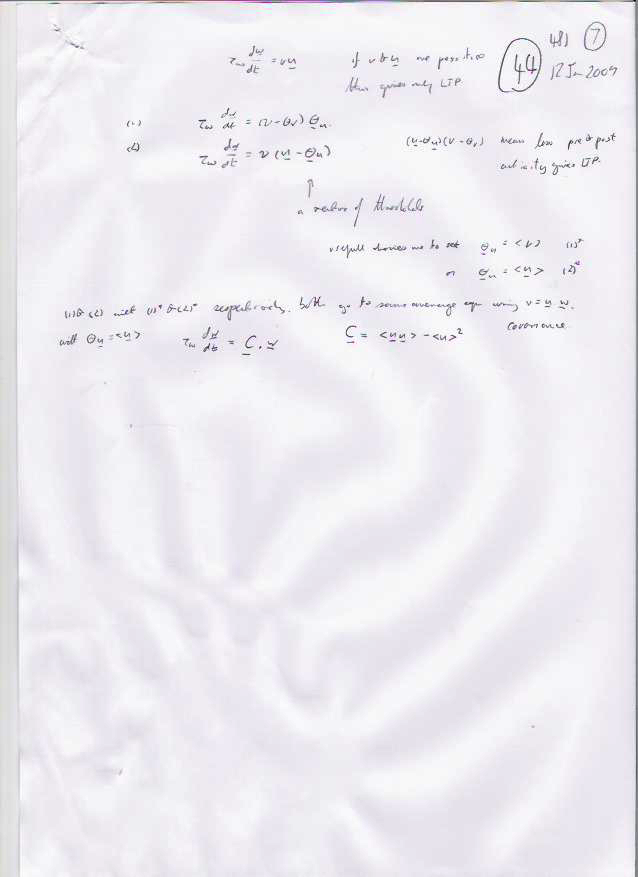 481 7
44 12 Jan 2009
τ_w dw/dt = v u if v & u are positive
this gives only LTP.
(1) τ_w dw/dt = (v - θv) θ_u.
(2) τ_w dw/dt = v (u - θ_u) (u - θ_u)(v - θ_v) mean low pre & post
activity gives LTP.
↑
a vector of thresholds
usefull choices are to set θ_u = <v> (1)*
or θ_u = <u> (2)*
(1) & (2) with (1)* & (2)* respectively. both go to same average eqn using v = u.w.
with θ_u = <u> τ_w dw/dt = C.w C = <u u> - <u>²
covariance.